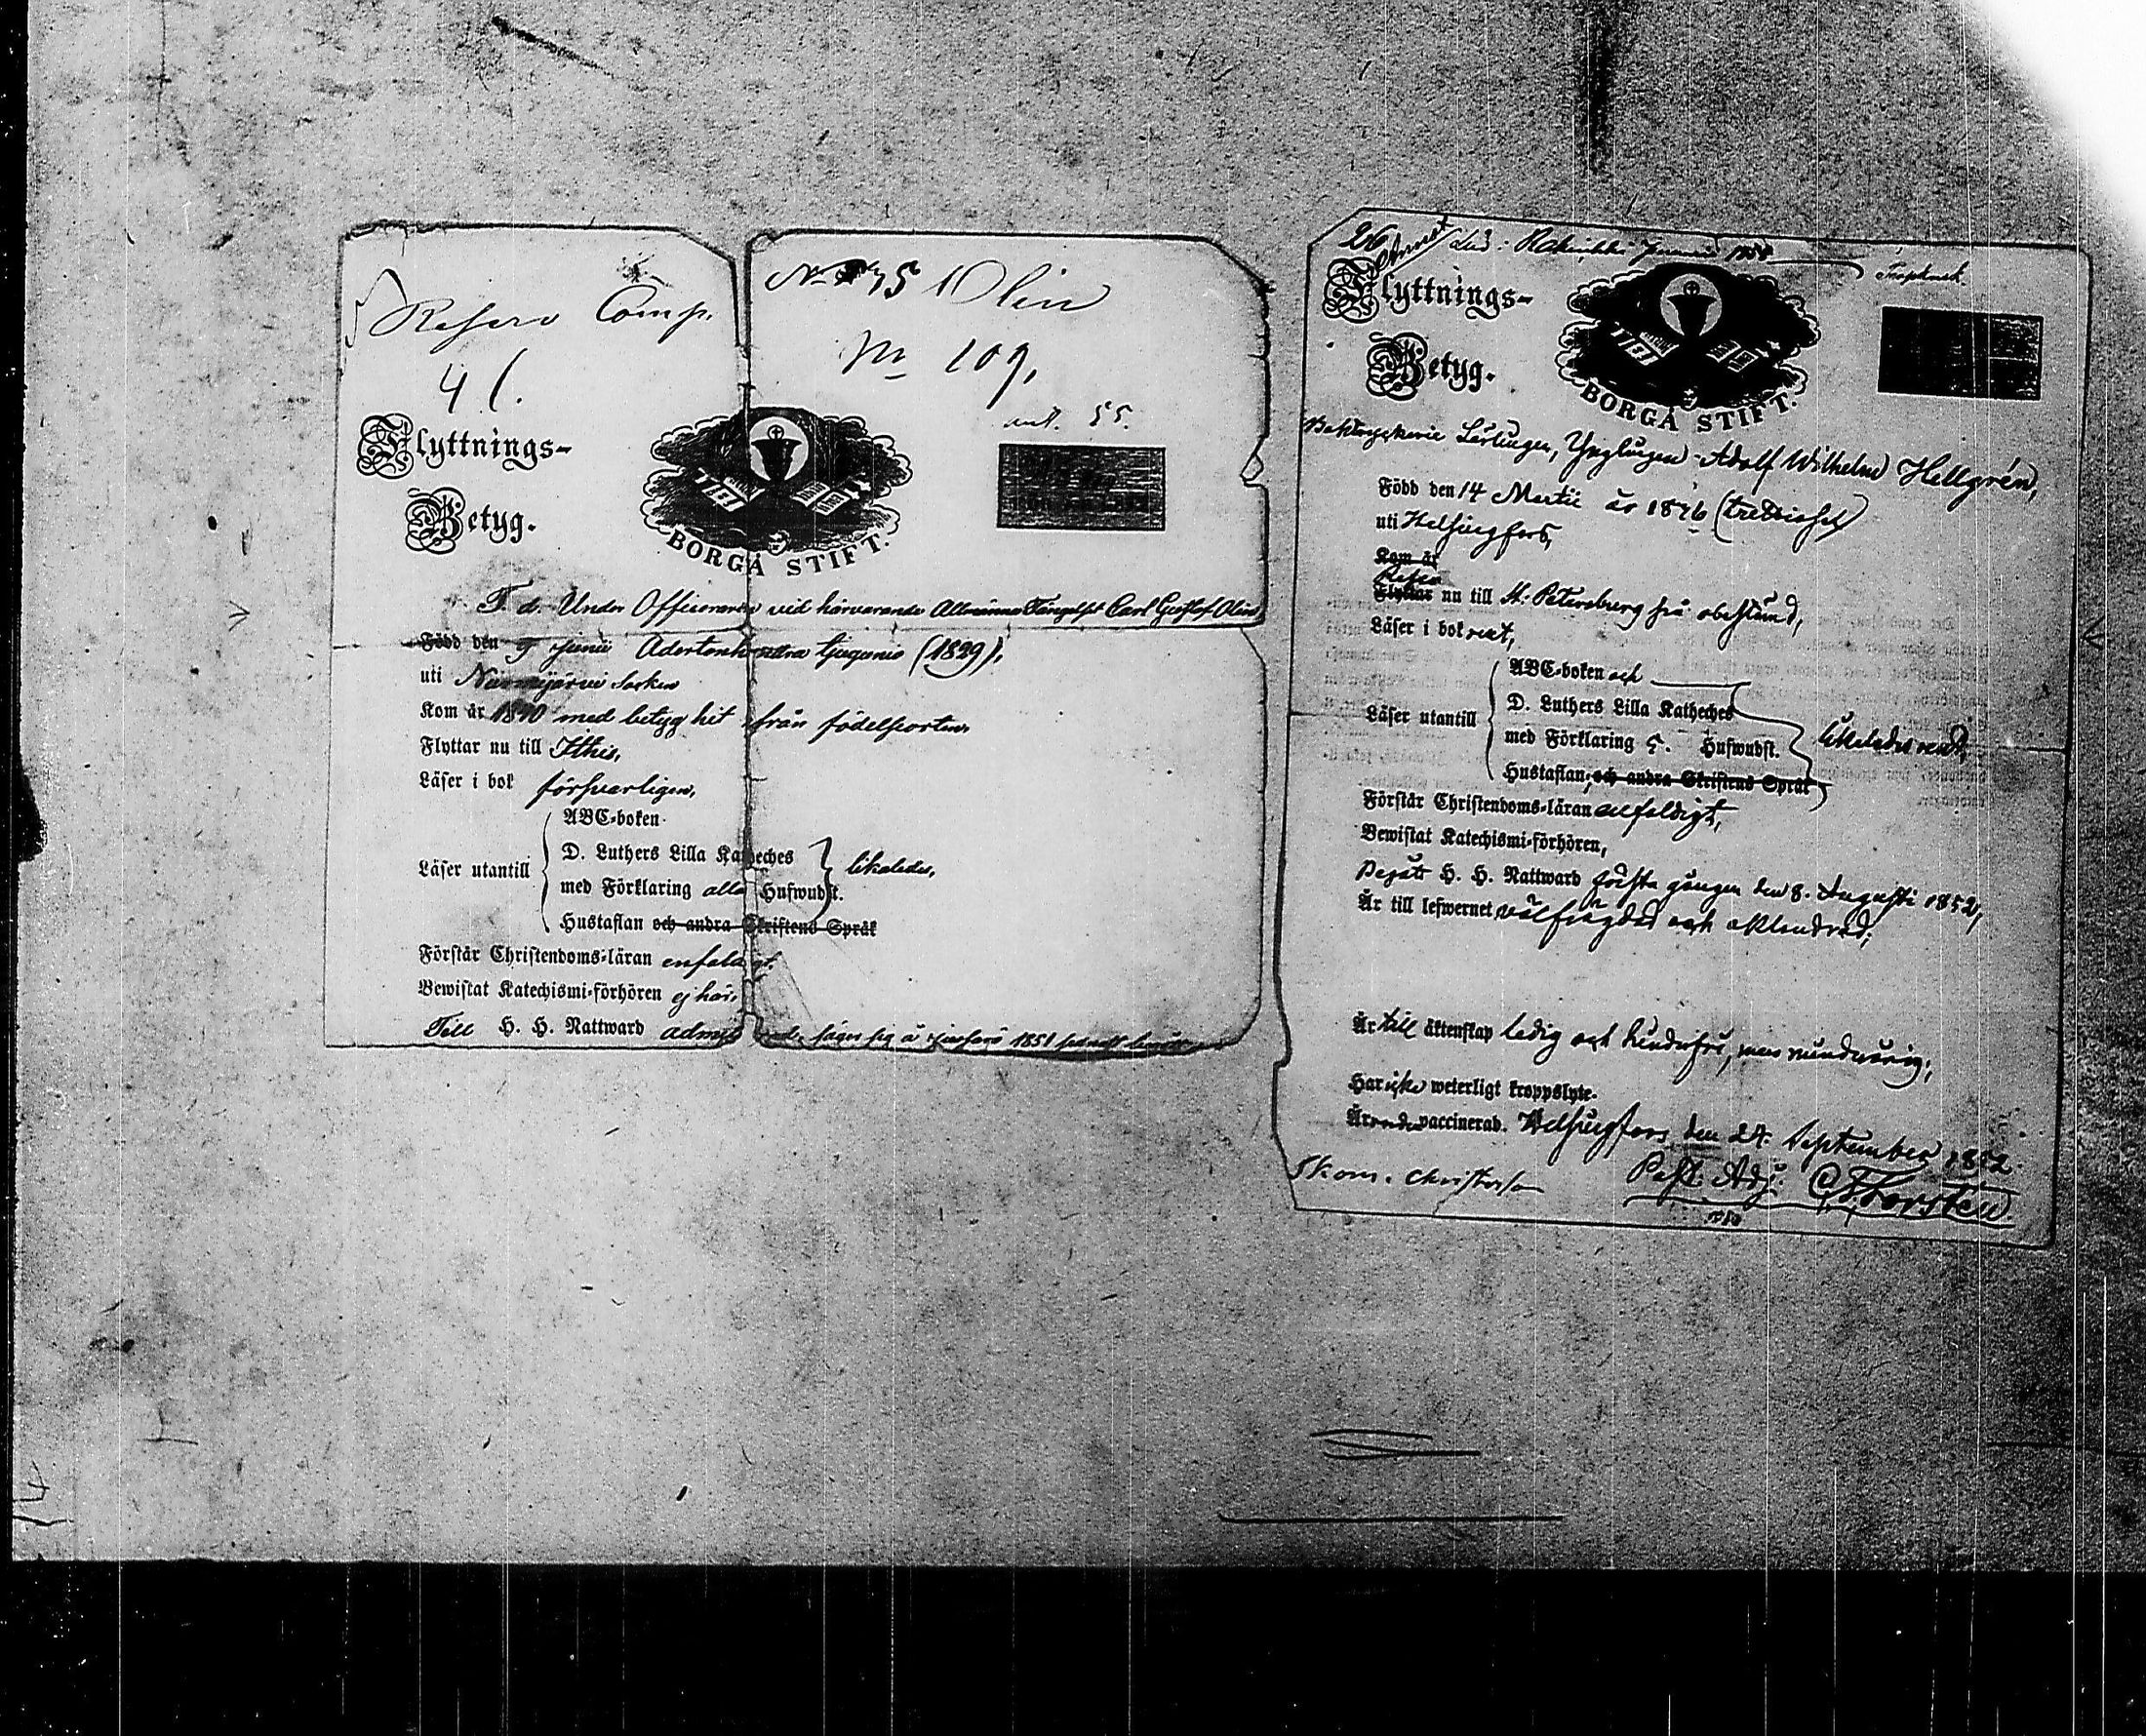 Reserv Comp.
41.
No 75 Olin
No 109,
ank. 55.
Flyttnings-
Betyg.
BORGÅ STIFT.
F. d. Under Officeraren vid härvarande Allmänna Fängelset Carl Gustaf Olin
Född den 9 Junii Adertonhundra tjugunio (1829),
uti Nurmijärvi Socken
Kom år 1840 med betyg hit från födelseorten,
Flyttar nu till Ithis,
Läser i bok försvarligen,
ABC-boken
D. Luthers Lilla Katheches
Läser utantill med Förklaring alla Hufwudst. likaledes,
Hustaflan och andra Skriftens Språk
Förstår Christendoms-läran enfaldigt.
Bewistat Katechismi-förhören ej här,
Till H. H. Nattward säger sig å 1851
26
Flyttnings-
Betyg.
BORGÅ STIFT.
Lärlingen, Ynglingen Adolf Wilhelm Hellgrén,
Född den 14 Martii år 1836 (trettiosex)
uti Helsingfors,
Kom år
Reser
Flyttar nu till St. Petersburg på obestämd,
Läser i bok rent,
ABC-boken och
D. Luthers Lilla Katheches
Läser utantill med Förklaring 5. Hufwudst. likaledes rent,
Hustaflan, och andra Skriftens Språk
Förstår Christendoms-läran enfaldigt,
Bewistat Katechismi-förhören,
Begått H. H. Nattward första gången den 8. Augusti 1852,
Är till lefwernet välfrägdad och oklandrad;
Är till äktenskap ledig och hinderfri, men minderårig;
Har icke weterligt kroppslyte.
Är vaccinerad. Helsingfors den 24. September 1852
Past. Adj. C. F. Forstén
Skom. Christerson